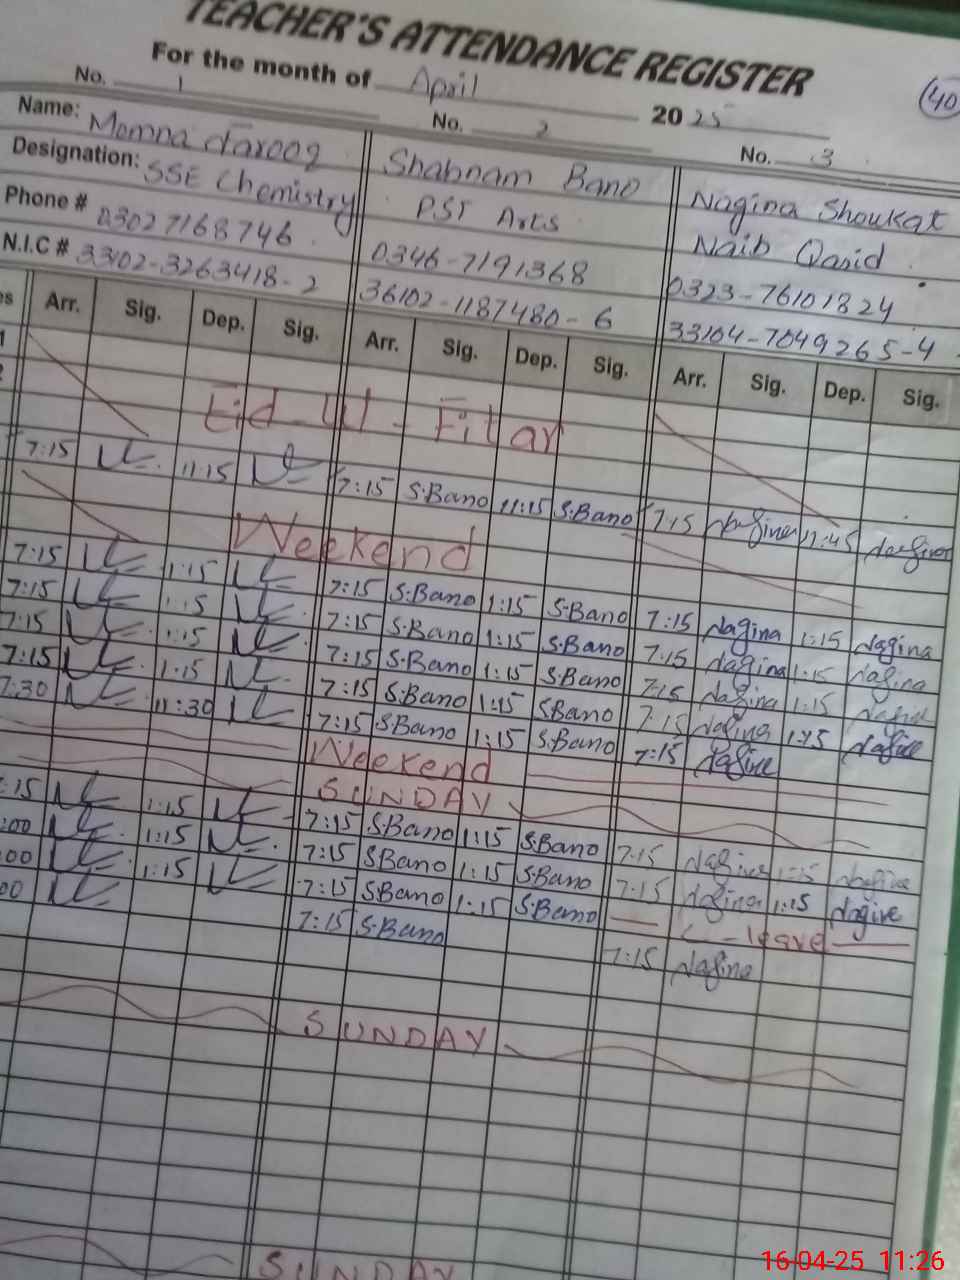 TEACHER'S ATTENDANCE REGISTER
For the month of April 2025
40
No. 1 No. 2 No. 3
Name: Momna farooq Shabnam Bano Nagina Shoukat
Designation: SSE Chemistry PST Arts Naib Qasid
Phone # 03027168746 0346-7191368 0323-76101824
N.I.C # 33102-3263418-2 36102-1187480-6 33104-7049265-4
es Arr. Sig. Dep. Sig. Arr. Sig. Dep. Sig. Arr. Sig. Dep. Sig.
1
2
Eid-Ul-Fitar
7:15 11:15 7:15 S.Bano 11:15 S.Bano 7:15 Nagina 11:45 Nagina
Weekend
7:15 1:15 7:15 S.Bano 1:15 S.Bano 7:15 Nagina 1:15 Nagina
7:15 1:15 7:15 S.Bano 1:15 S.Bano 7:15 Nagina 1:15 Nagina
7:15 1:15 7:15 S.Bano 1:15 S.Bano 7:15 Nagina 1:15 Nagina
7:15 1:15 7:15 S.Bano 1:15 S.Bano 7:15 Nagina 1:15 Nagina
7:30 11:30 7:15 S.Bano 1:15 S.Bano 7:15 Nagina
Weekend
SUNDAY
:15 1:15 7:15 S.Bano 1:15 S.Bano 7:15 Nagina 1:15 Nagina
:00 1:15 7:15 S.Bano 1:15 S.Bano 7:15 Nagina 1:15 Nagina
:00 1:15 7:15 S.Bano 1:15 S.Bano leave
00 7:15 S.Bano 7:15 Nagina
SUNDAY
SUNDAY
16-04-25 11:26